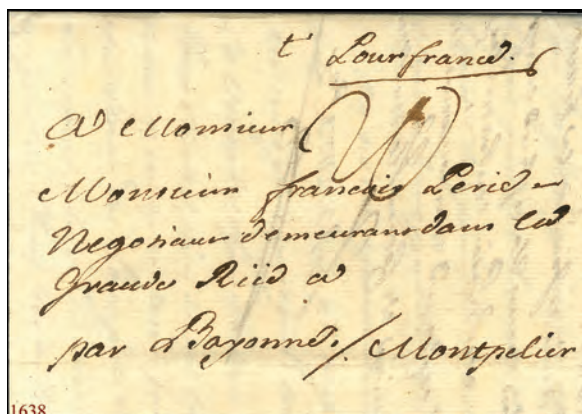 t Pour france.
A Monsieur
Monsieur francois Perié
Negosiant demeurant dans la
Grande Riie a
par Bayonne. / Montpelier
1638